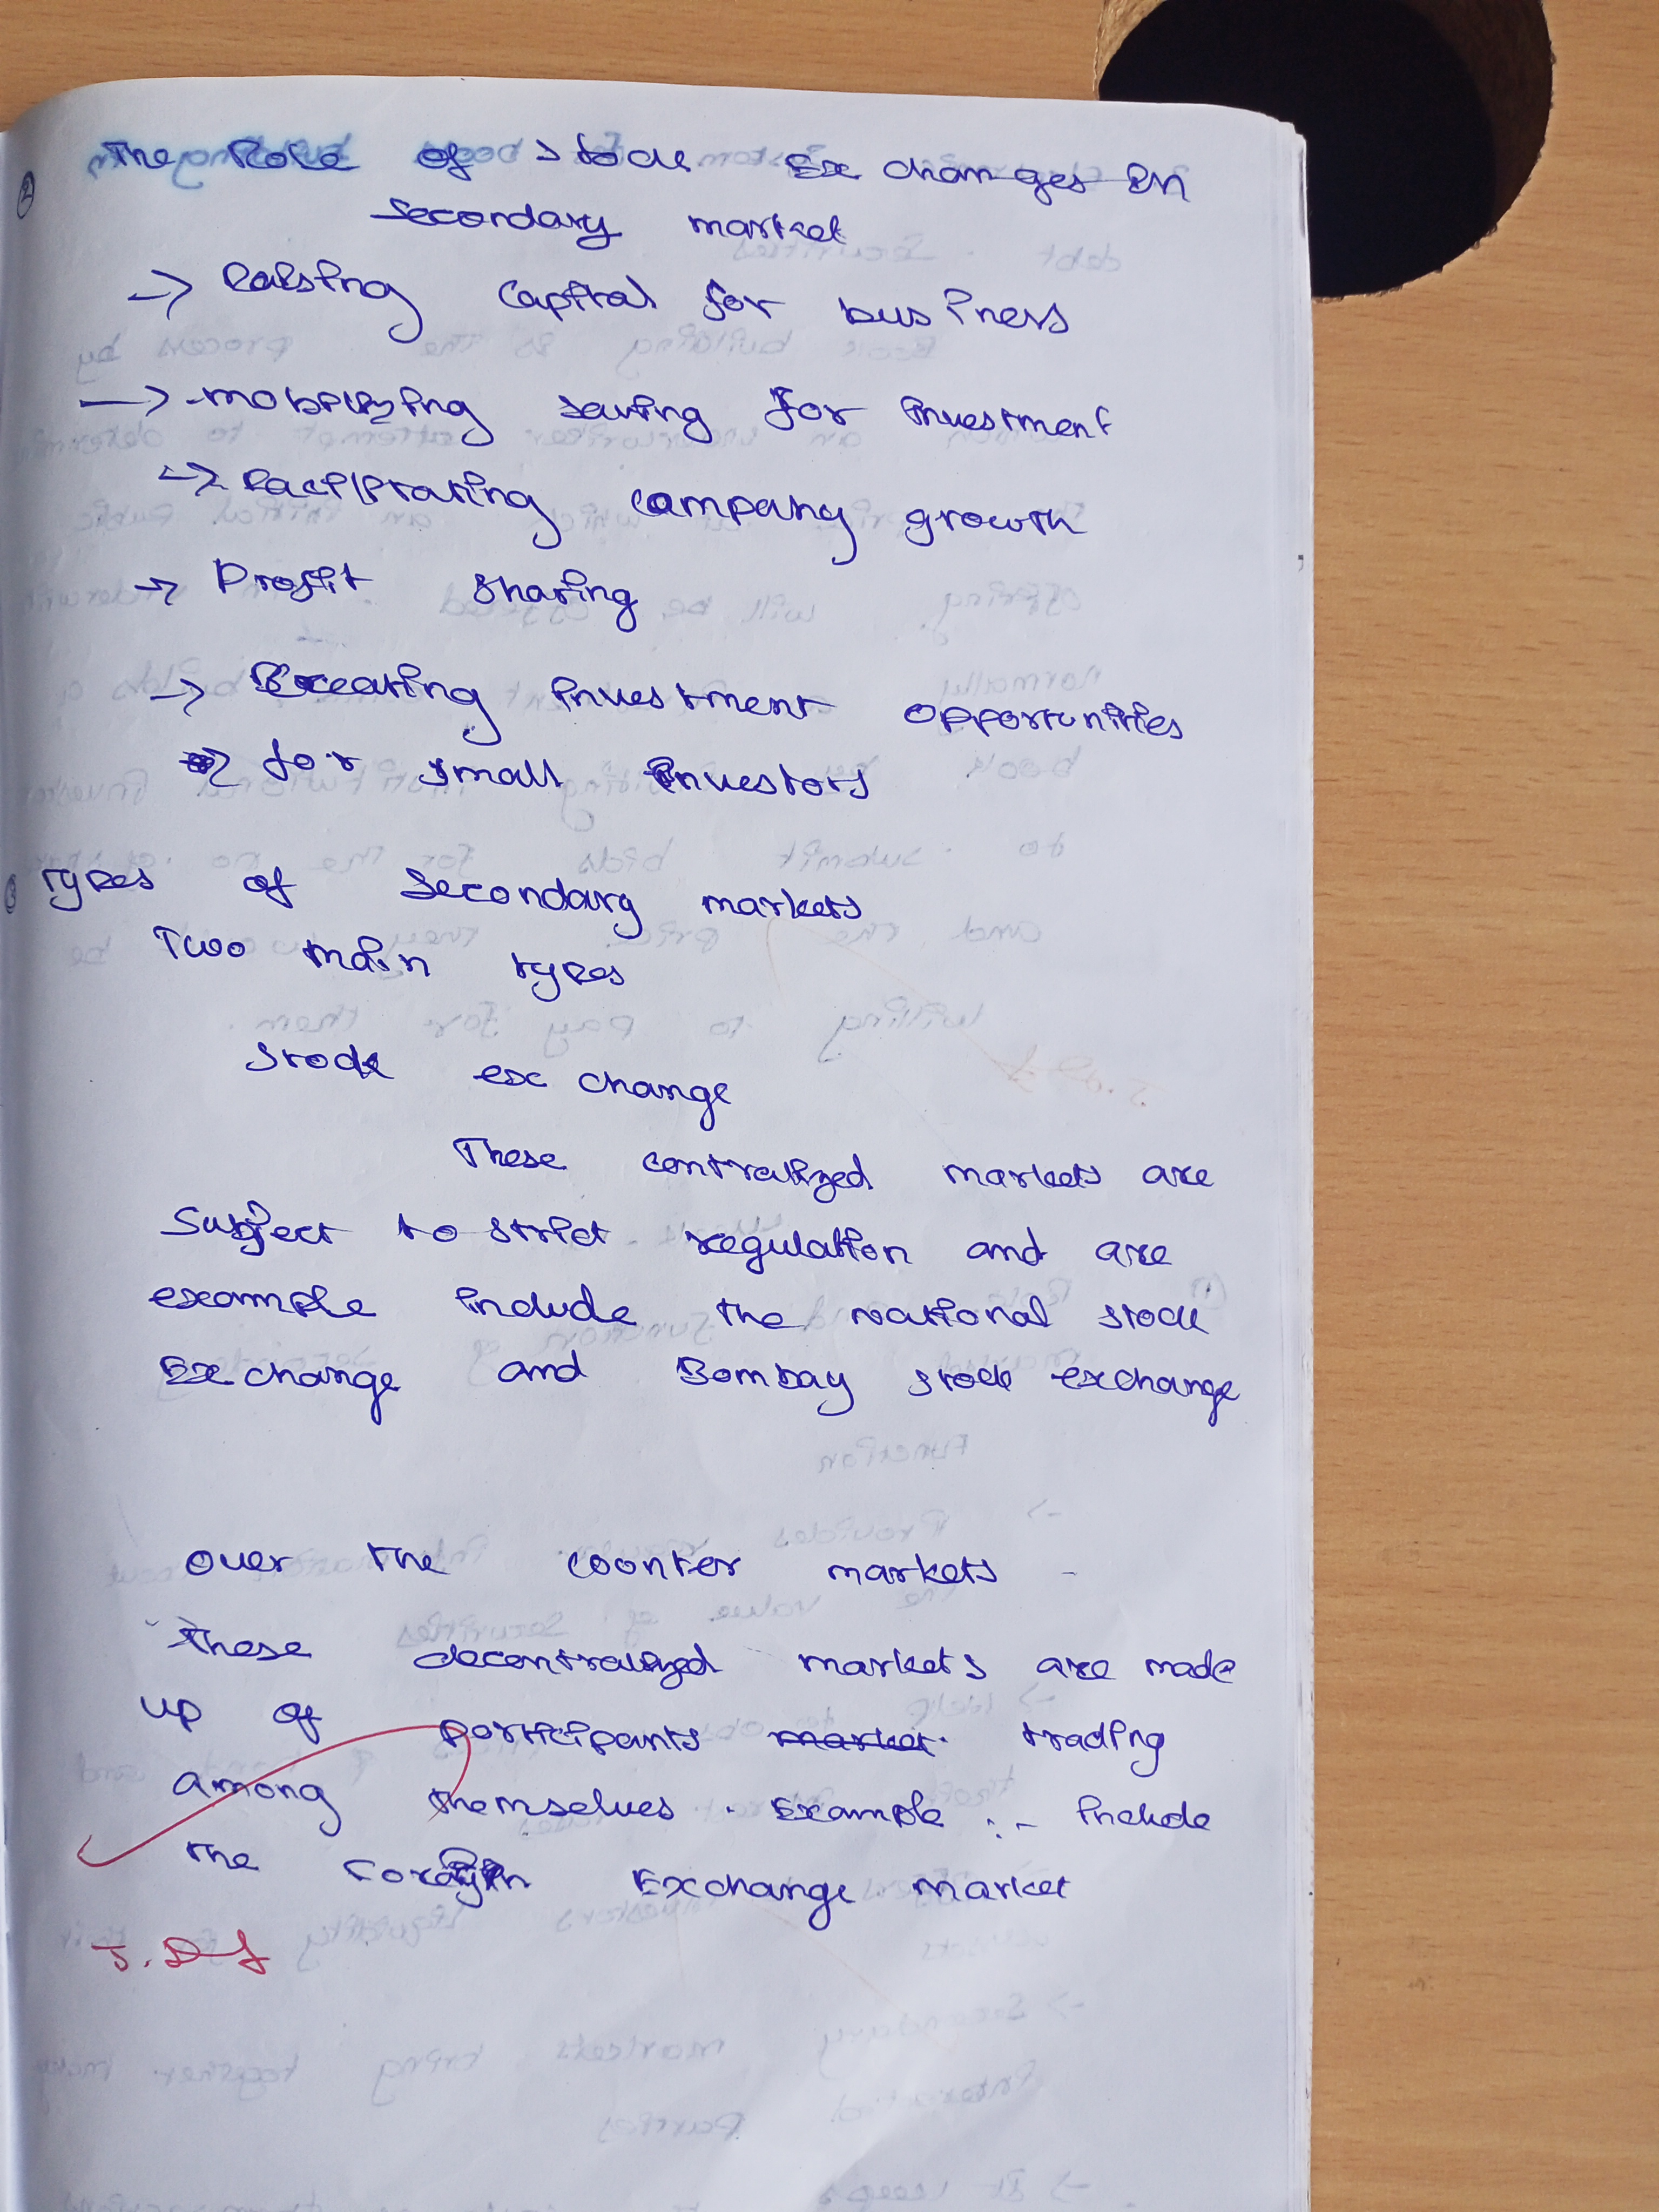 ② The Role of Stock Exchanges in
Secondary market
→ Raising Capital for business
→ mobilizing saving for investment
→ Facilitating company growth
→ Profit sharing
→ Creating investment opportunities
for small investors
Types of Secondary markets
Two main types
Stock exchange
These contralized markets are
Subject to strict regulation and are
example include the national stock
Exchange and Bombay stock exchange
over the counter markets
These decentralized markets are made
up of participants market trading
among themselves. Example :- include
the Exchange market